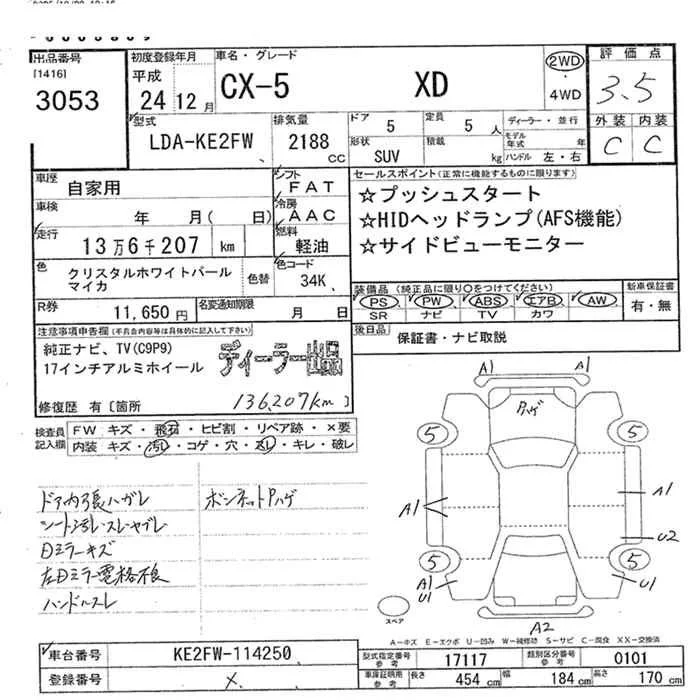 出品番号
[1416]
3053
初度登録年月
平成
24 12月
車名・グレード
CX-5 XD
2WD
・
4WD
評価点
3.5
外装 内装
C C
型式
LDA-KE2FW
排気量
2188 cc
ドア 5
定員 5 人
形状 SUV
積載 kg
ディーラー・並行
モデル年式 年
ハンドル 左・右
車歴 自家用
シフト FAT
車検 年 月( 日)
冷房 AAC
走行 13万6千207 km
燃料 軽油
色 クリスタルホワイトパール
マイカ
色替
色コード 34K
R券 11,650円
名変通知期限 月 日
セールスポイント(正常に機能するものに限ります)
☆プッシュスタート
☆HIDヘッドランプ(AFS機能)
☆サイドビューモニター
装備品(純正品に限り○をつけてください)
PS PW ABS エアB AW
SR ナビ TV カワ
新車保証書
有・無
後日品 保証書・ナビ取説
注意事項申告欄(不具合内容等は具体的に記入して下さい)
純正ナビ、TV(C9P9)
17インチアルミホイール
ディーラー出品
修復歴 有〔箇所 136,207km〕
検査員
記入欄
FW キズ・飛石・ヒビ割・リペア跡・×要
内装 キズ・汚レ・コゲ・穴・スレ・キレ・破レ
ドア内張ハガレ
シート汚レ・スレ・ヤブレ
ボンネットハゲ
ミラーキズ
ハンドルスレ
A1 A1
ハゲ
5 5
A1 A1
U2
5 5
A1
U1 U1
A2
スペア
A−キズ E−エクボ U−凹み W−補修跡 S−サビ C−腐食 XX−交換済
車台番号 KE2FW-114250
登録番号 ×
型式指定番号
参考
17117
類別区分番号
参考
0101
車庫証明用
参考
長さ 454 cm 幅 184 cm 高さ 170 cm